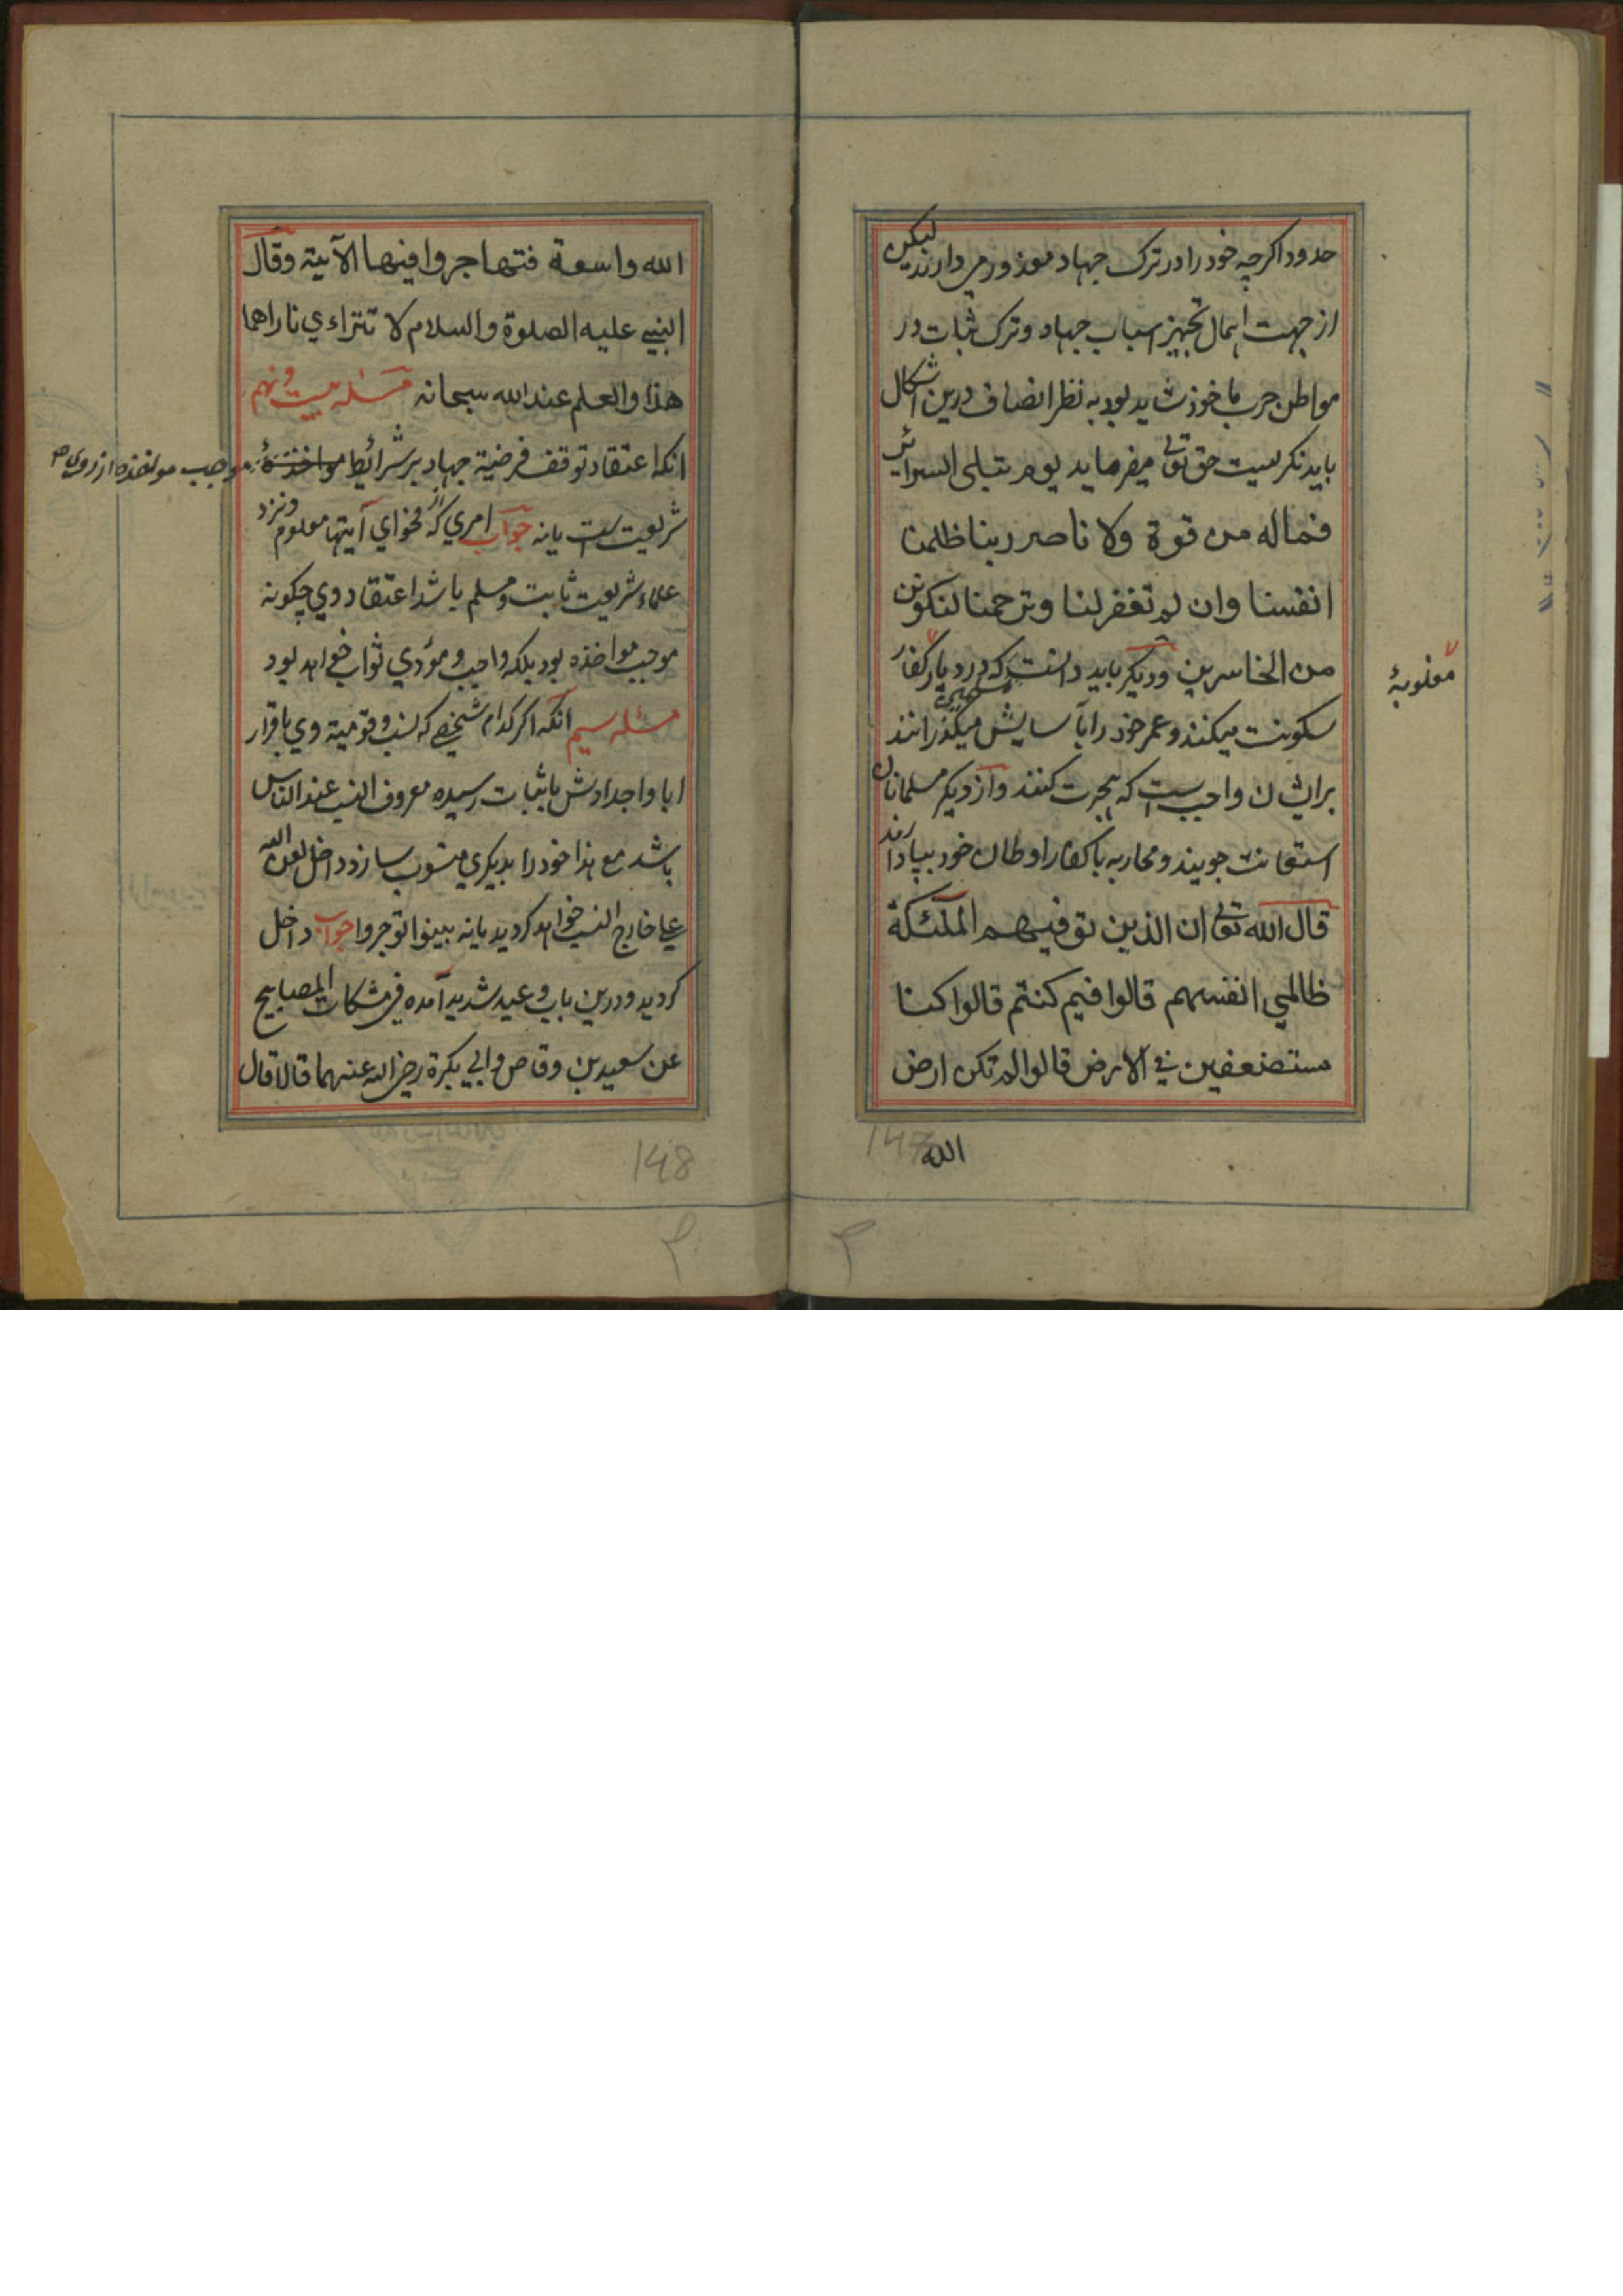 حدود اكرچه خود را در ترك جهاد معذور مي دارند ليكن
از جهت اهمال تجهيز اسباب جهاد و ترك ثبات در
مواطن حرب ماخوذ شايد بود به نظر انصاف درين اشكال
بايد نكريست حق تعالى ميفرمايد يوم تبلى السرائر
فماله من قوة ولا ناصر ربنا ظلمنا
انفسنا وان لم تغفر لنا وترحمنا لنكونن
من الخاسرين وديكر بايد دانست كه در ديار كفار
مغلوبهٔ
سكونت ميكنند و عمر خود را بآسايش ميكذرانند
برايشان واجب است كه هجرت كنند و از ديكر مسلمانان
استعانت جويند و محاربه با كفار اوطان خود بپا دارند
قال الله تعالى ان الذين توفيهم الملئكة
ظالمي انفسهم قالوا فيم كنتم قالوا كنا
مستضعفين في الارض قالوا الم تكن ارض
الله
147
الله واسعة فتهاجروا فيها الآية وقال
النبي عليه الصلوة والسلام لا تتراءي ناراهما
هذا والعلم عند الله سبحانه مسئله بيست ونهم
انكه اعتقاد توقف فرضية جهاد بر شرائط مواخذهٔ موجب مواخذه از روي
شريعت است يا نه جواب امري كه از فحواي آيتها معلوم ونزد
علماء شريعت ثابت و مسلم باشد اعتقاد وي چكونه
موجب مواخذه بود بلكه واجب و مؤدي ثواب خواهد بود
مسئله سيم انكه اكر كدام شخصي كه نسب و قومية وي باقرار
ابا و اجدادش باثبات رسيده معروف النسب عند الناس
باشد مع هذا خود را بديكري منسوب سازد داخل لعن الله
علي خارج النسب خواهد كرديد يا نه بينوا توجروا جواب داخل
كرديد و درين باب وعيد شديد آمده في مشكات المصابيح
عن سعيد بن وقاص و ابي بكرة رضي الله عنهما قالا قال
148